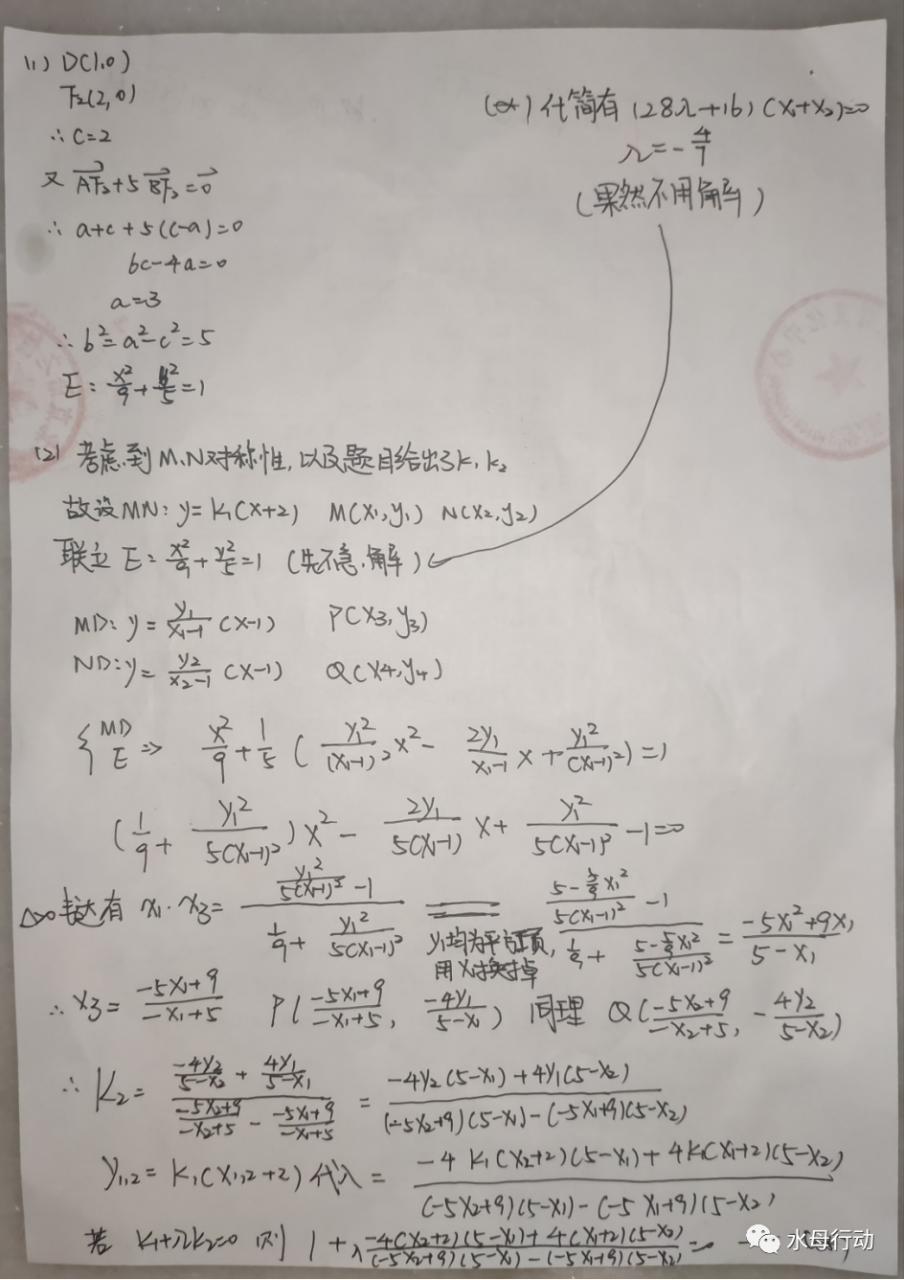 (1) D(1,0)
F₂(2,0)
∴ c=2
又 \overrightarrow{AF₂}+5\overrightarrow{BF₂}=\vec{0}
∴ a+c+5(c-a)=0
6c-4a=0
a=3
∴ b²=a²-c²=5
E: \frac{x²}{9}+\frac{y²}{5}=1
(2) 考虑到M.N对称性,以及题目给出了k₁k₂
故设MN: y=k₁(x+2) M(x₁,y₁) N(x₂,y₂)
联立 E: \frac{x²}{9}+\frac{y²}{5}=1 (先不急.解)
MD: y=\frac{y₁}{x₁-1}(x-1) P(x₃,y₃)
ND: y=\frac{y₂}{x₂-1}(x-1) Q(x₄,y₄)
{MD E ⇒ \frac{x²}{9}+\frac{1}{5}(\frac{y₁²}{(x₁-1)²}x²-\frac{2y₁}{x₁-1}x+\frac{y₁²}{(x₁-1)²})=1
(\frac{1}{9}+\frac{y₁²}{5(x₁-1)²})x²-\frac{2y₁}{5(x₁-1)}x+\frac{y₁²}{5(x₁-1)²}-1=0
△>0 韦达有 x₁·x₃=\frac{\frac{y₁²}{5(x₁-1)²}-1}{\frac{1}{9}+\frac{y₁²}{5(x₁-1)²}} = \frac{\frac{5-\frac{5}{9}x₁²}{5(x₁-1)²}-1}{\frac{1}{9}+\frac{5-\frac{5}{9}x₁²}{5(x₁-1)²}}=\frac{-5x₁²+9x₁}{5-x₁}
y₁均为平方项,
用x₁替换掉
∴ x₃=\frac{-5x₁+9}{-x₁+5} P(\frac{-5x₁+9}{-x₁+5}, \frac{-4y₁}{5-x₁}) 同理 Q(\frac{-5x₂+9}{-x₂+5}, -\frac{4y₂}{5-x₂})
∴ k₂=\frac{\frac{-4y₂}{5-x₂}+\frac{4y₁}{5-x₁}}{\frac{-5x₂+9}{-x₂+5}-\frac{-5x₁+9}{-x₁+5}}=\frac{-4y₂(5-x₁)+4y₁(5-x₂)}{(-5x₂+9)(5-x₁)-(-5x₁+9)(5-x₂)}
y₁,₂=k₁(x₁,₂+2)代入=\frac{-4k₁(x₂+2)(5-x₁)+4k₁(x₁+2)(5-x₂)}{(-5x₂+9)(5-x₁)-(-5x₁+9)(5-x₂)}
若 k₁+λk₂=0 则 1+λ\frac{-4(x₂+2)(5-x₁)+4(x₁+2)(5-x₂)}{(-5x₂+9)(5-x₁)-(-5x₁+9)(5-x₂)}=0
(※) 化简有 (28λ+16)(x₁+x₂)=0
λ=-\frac{4}{7}
(果然不用解)
水母行动